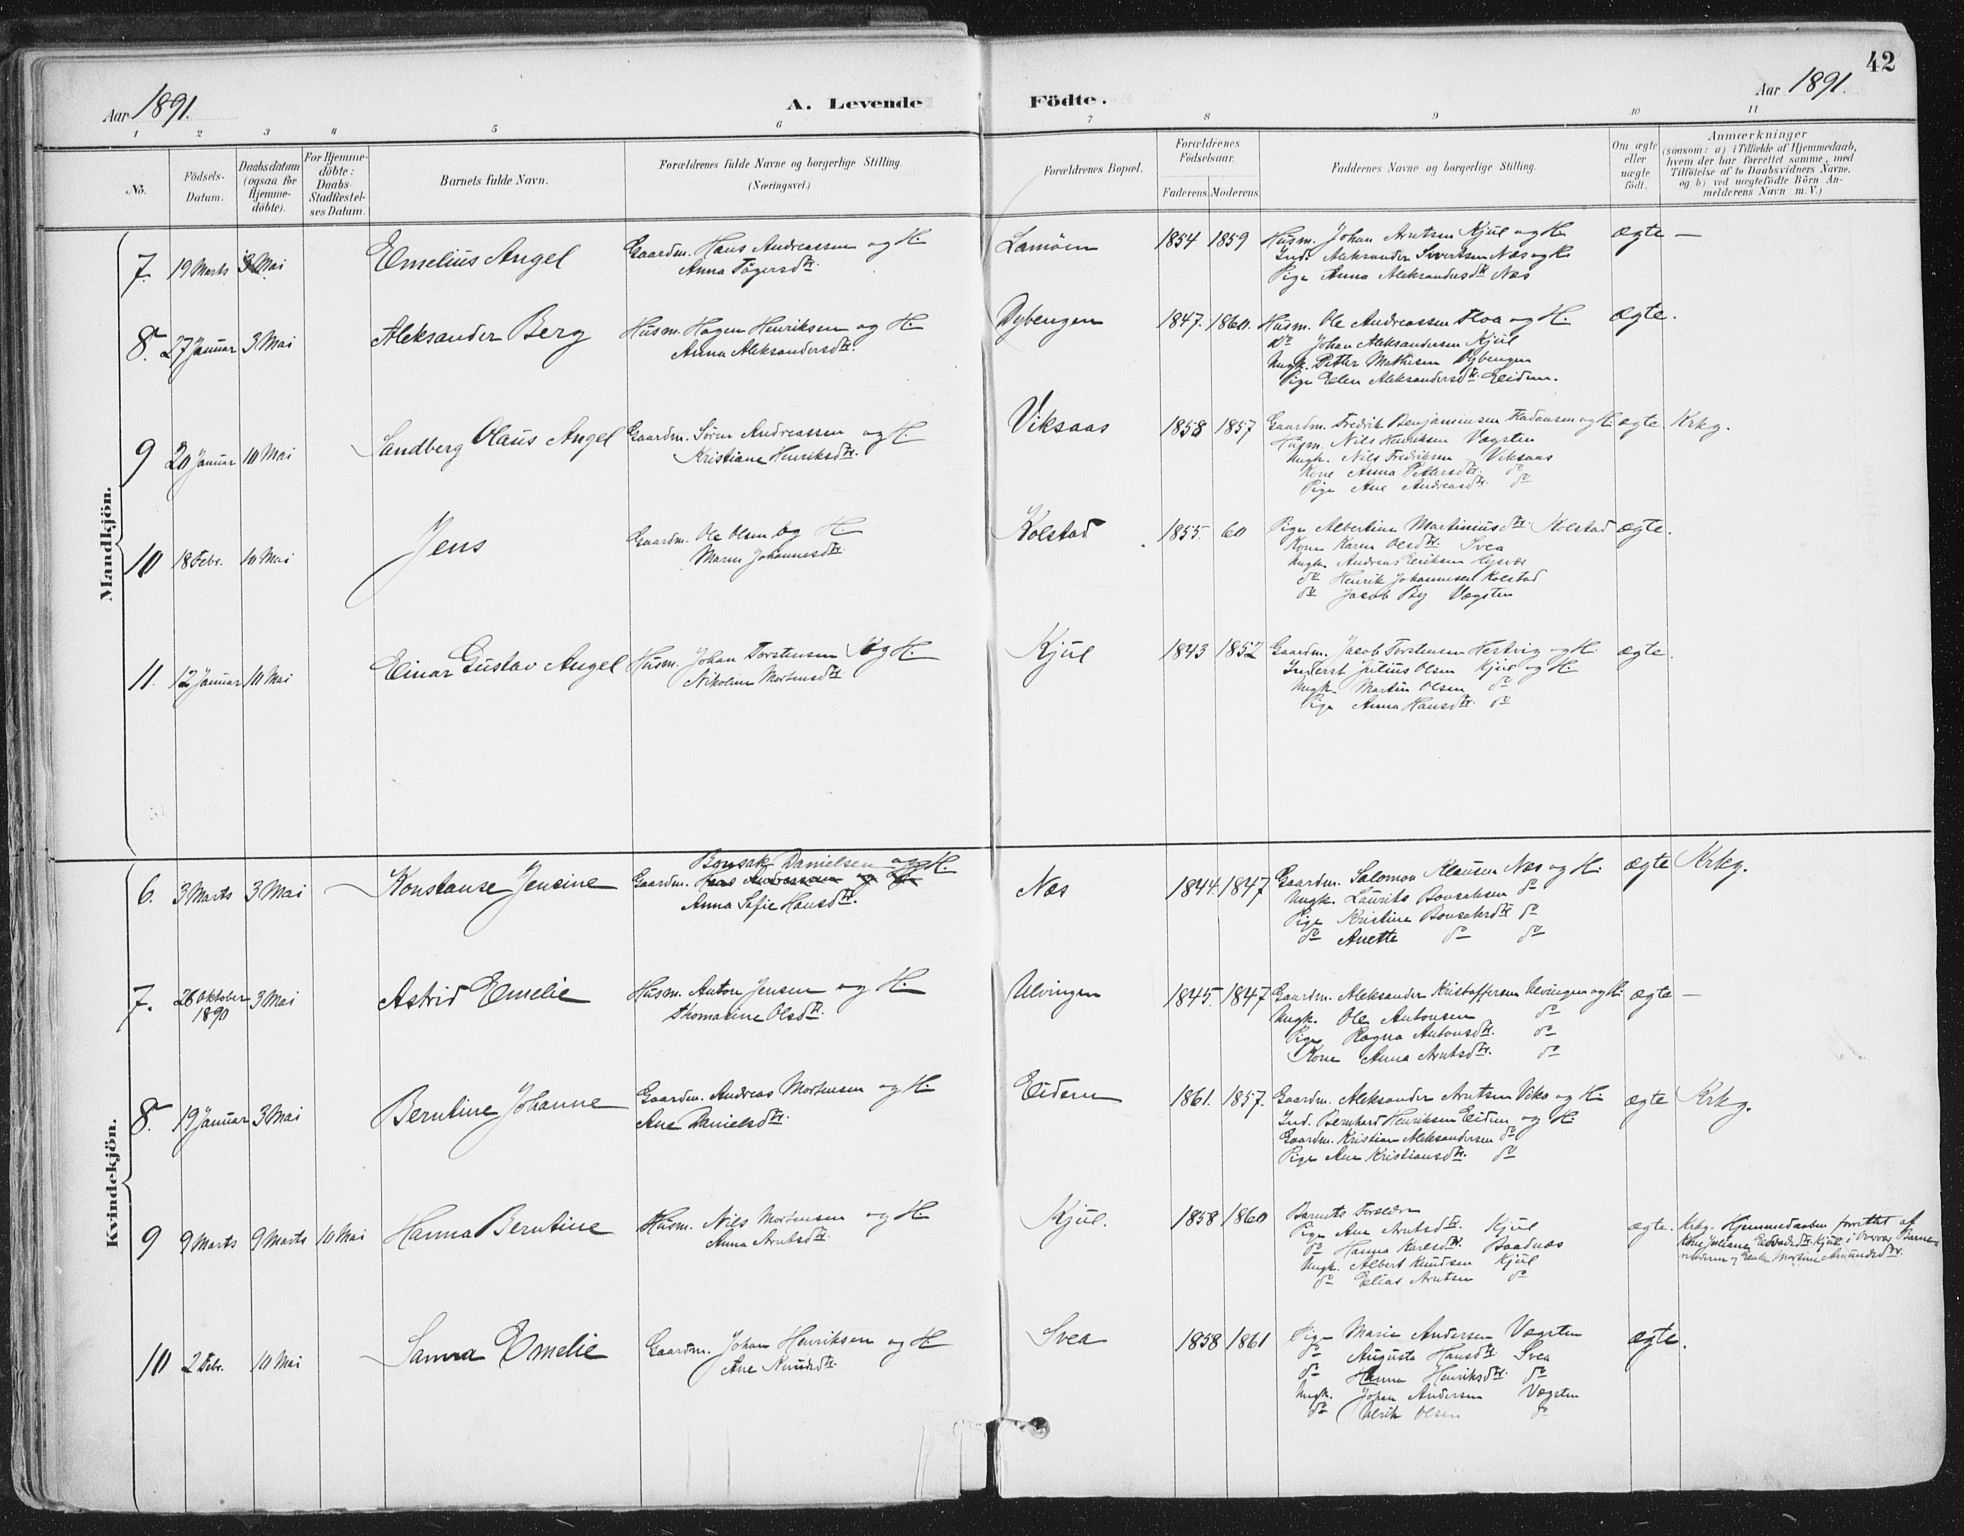 42
Aar 1891.
A. Levende Födte.
Aar 1891.
1 2 3 4 5 6 7 8 9 10 11
No.
Födsels-
Datum.
Daabsdatum
(ogsaa for
Hjemme-
döbte).
For Hjemme-
döbte:
Daabs-
Stadfæstel-
ses Datum.
Barnets fulde Navn.
Forældrenes fulde Navne og borgerlige Stilling.
(Næringsvei.)
Forældrenes Bopæl.
Forældrenes
Födselsaar.
Faderens. Moderens.
Faddernes Navne og borgerlige Stilling.
Om ægte
eller
uægte
födt.
Anmærkninger
(saasom: a) i Tilfælde af Hjemmedaab,
hvem der har forrettet samme, med
Tilföielse af to Daabsvidners Navne,
og b) ved uægtefödte Börn An-
melderens Navn m. V.)
Mandkjön.
7. 19 Marts 3 Mai Emelius Angel Gaardm. Hans Andreassen og H. Lamøen 1854 1859 Husm. Johan Arntsen Kjul og H. ægte —
Anna Tøgersdtr. Ind. Aleksander Sivertsen Næs og H.
Pige Anna Aleksandersdtr Næs
8. 27 Januar 3 Mai Aleksander Berg Husm. Hagen Henriksen og H. Dybengen 1847. 1860. Husm. Ole Andreassen Floa og H. ægte.
Anna Aleksandersdtr. Do Johan Aleksandersen Kjul
Ungk. Petter Mathisen Dybengen
Pige Elen Aleksandersdtr. Eidem.
9 20 Januar 10 Mai Sandberg Olaus Angel Gaardm. Sørn Andreassen og H. Viksaas 1858 1857 Gaardm. Fredrik Benjaminsen og H. ægte Krkg.
Kristiane Henriksdtr. Husm. Nils Henriksen Vægsten
Ungk. Nils Fredriksen Viksaas
Kone Anna Pettersdtr. do
Pige Ane Andreasdtr. do
10 18 Febr. 10 Mai Jens Gaardm. Ole Olsen og H. Kolstad 1855. 60 Pige Albertine Martiniusdtr. Kolstad ægte.
Maren Johannesdtr. Kone Karen Olsdtr. Svea
Ungk. Andreas Eriksen
do Henrik Johannesen Kolstad
do Jacob By Vægsten
11. 12 Januar 10 Mai Einar Gustav Angel Husm. Johan Torstensen og H. Kjul 1843 1852 Gaardm. Jacob Torstensen og H. ægte.
Nikoline Mortensdtr. Inderst Julius Olsen Kjul og H.
Ungk. Martin Olsen do
Pige Anna Hansdtr. do
Kvindekjön.
Bonsak Danielsen og H.
6. 3 Marts 3 Mai Konstanse Jensine Gaardm. Hans Andreassen og H. Næs 1844. 1847 Gaardm. Salomon Klausen Næs og H. ægte Krkg.
Anna Sofie Hansdtr. Ungk. Laurits Bonsaksen do
Pige Kristine Bonsaksdtr do
do Anette do do
7. 26 Oktober 3 Mai Astrid Emelie Husm. Anton Jensen og H. Ulvingen 1845. 1847 Gaardm. Aleksander Kristoffersen Ulvingen og H. ægte —
1890 Thomasine Olsdtr. Ungk. Ole Antonsen do
Pige Ragna Antonsdtr. do
Kone Anna Arntsdtr. do
8. 19 Januar 3 Mai Berntine Johanne Gaardm. Andreas Mortensen og H. Eidem 1861. 1857. Gaardm. Aleksander Arntsen Viks og H. ægte Krkg.
Ane Danielsdtr. Ind. Bernhard Henriksen Eidem og H.
Gaardm. Kristian Aleksandersen do
Pige Ane Kristiansdtr. do
9 9 Marts 9 Marts 10 Mai Hanna Berntine Husm. Nils Mortensen og H. Kjul. 1858 1860 Barnets Forældre ægte. Krkg. Hjemmedaaben forrettet af
Anna Arntsdtr. Pige Ane Arntsdtr. Kjul Kone Juliane Kjul i Overvær Barne-
do Hanna Karlsdtr. Baadnæs moderen og Enke Martine Amundsdtr.
Ungk. Albert Knudsen Kjul
do Elias Arntsen do
10 2 Febr. 10 Mai Sanna Emelie Gaardm. Johan Henriksen og H. Svea 1858 1861 Pige Marie Andersen Vægsten ægte.
Ane Knudsdtr. do Augusta Hansdtr Svea
do Hanna Henriksdtr. do
Ungk. Johan Andersen Vægsten
do Ulrik Olsen do